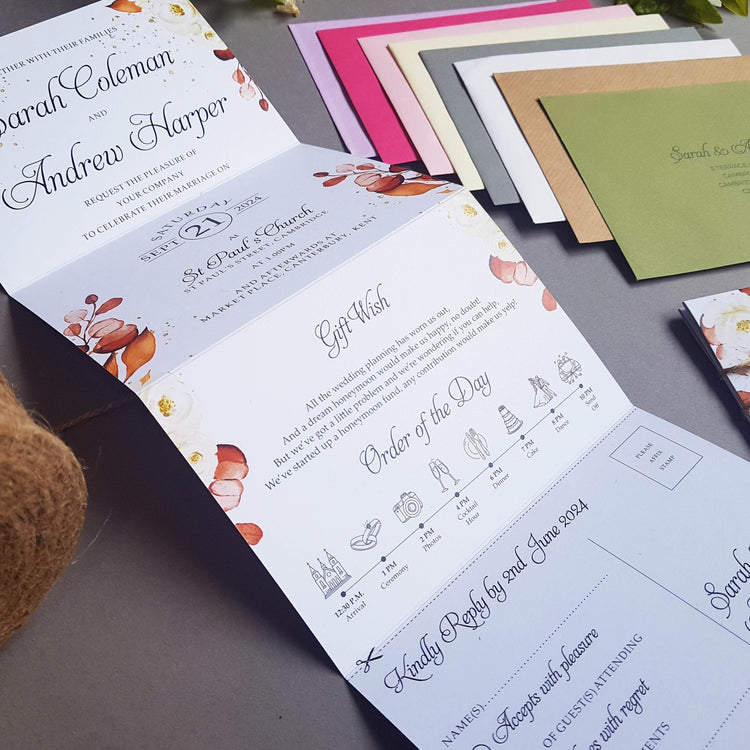 WITH THEIR FAMILIES
Sarah Coleman
AND
Andrew Harper
REQUEST THE PLEASURE OF
YOUR COMPANY
TO CELEBRATE THEIR MARRIAGE ON
SATURDAY
SEPT 21 2024
At
St Paul's Church
ST PAUL'S STREET, CAMBRIDGE
AT 1.00PM
AND AFTERWARDS AT
MARKET PLACE, CANTERBURY, KENT
Gift Wish
All the wedding planning has worn us out,
And a dream honeymoon would make us happy, no doubt!
But we've got a little problem and we're wondering if you can help,
We've started up a honeymoon fund, any contribution would make us yelp!
Order of the Day
12:30 P.M. Arrival
1 PM Ceremony
2 PM Photos
4 PM Cocktail Hour
6 PM Dinner
7 PM Cake
8 PM Dance
10 PM Send Off
PLEASE
AFFIX
STAMP
Kindly Reply by 2nd June 2024
NAME(S)
Accepts with pleasure
OF GUEST(S) ATTENDING
with regret
Sarah
Sarah &